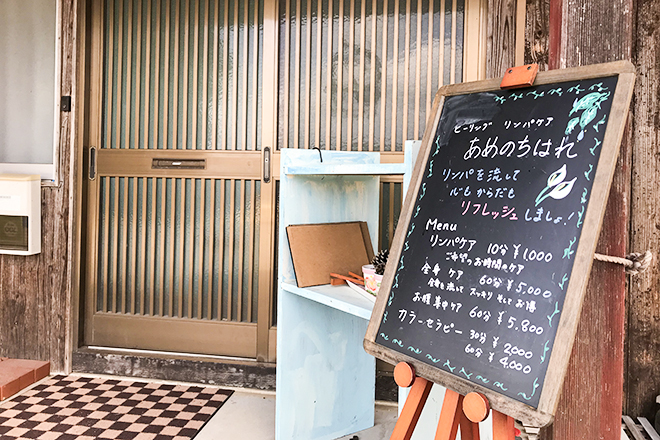 ヒーリング リンパケア
あめのちはれ
リンパを流して
心も からだも
リフレッシュしましょ!
Menu
リンパケア 10分 ¥1,000
ご希望のお時間のケア
全身ケア 60分 ¥5,000
全身を流して スッキリ そしてお得
お腹集中ケア 60分 ¥5,800
カラーセラピー 30分 ¥2,000
60分 ¥4,000